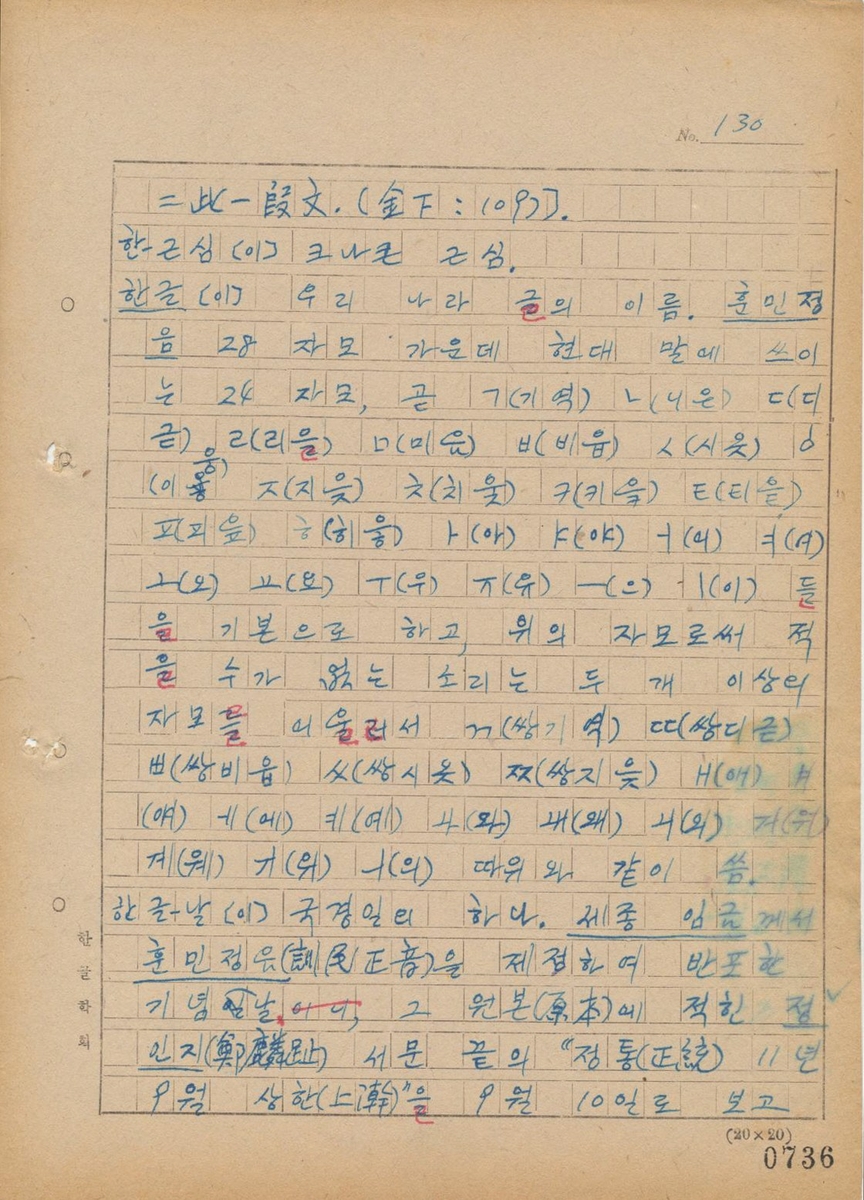 No. 130
= 此一段文. (金下 : 109)].
한-근심 [이] 크나큰 근심.
한글 [이] 우리 나라 글의 이름. 훈민정
음 28 자모 가운데 현대 말에 쓰이
는 24 자모, 곧 ㄱ(기역) ㄴ(니은) ㄷ(디
귿) ㄹ(리을) ㅁ(미음) ㅂ(비읍) ㅅ(시옷) ㅇ
(이응) ㅈ(지읒) ㅊ(치읓) ㅋ(키읔) ㅌ(티읕)
ㅍ(피읖) ㅎ(히읗) ㅏ(아) ㅑ(야) ㅓ(어) ㅕ(여)
ㅗ(오) ㅛ(요) ㅜ(우) ㅠ(유) ㅡ(으) ㅣ(이) 들
을 기본으로 하고, 위의 자모로써 적
을 수가 없는 소리는 두 개 이상의
자모를 어울러서 ㄲ(쌍기역) ㄸ(쌍디귿)
ㅃ(쌍비읍) ㅆ(쌍시옷) ㅉ(쌍지읒) ㅐ(애) ㅒ
(얘) ㅔ(에) ㅖ(예) ㅘ(와) ㅙ(왜) ㅚ(외) ㅝ(워)
ㅞ(웨) ㅟ(위) ㅢ(의) 따위와 같이 씀.
한글-날 [이] 국경일의 하나. 세종 임금께서
훈민정음(訓民正音)을 제정하여 반포한
기념날. 그 원본(原本)에 적힌 정
인지(鄭麟趾) 서문 끝의 "정통(正統) 11년
9월 상한(上澣)"을 9월 10일로 보고
한글학회
(20×20)
0736